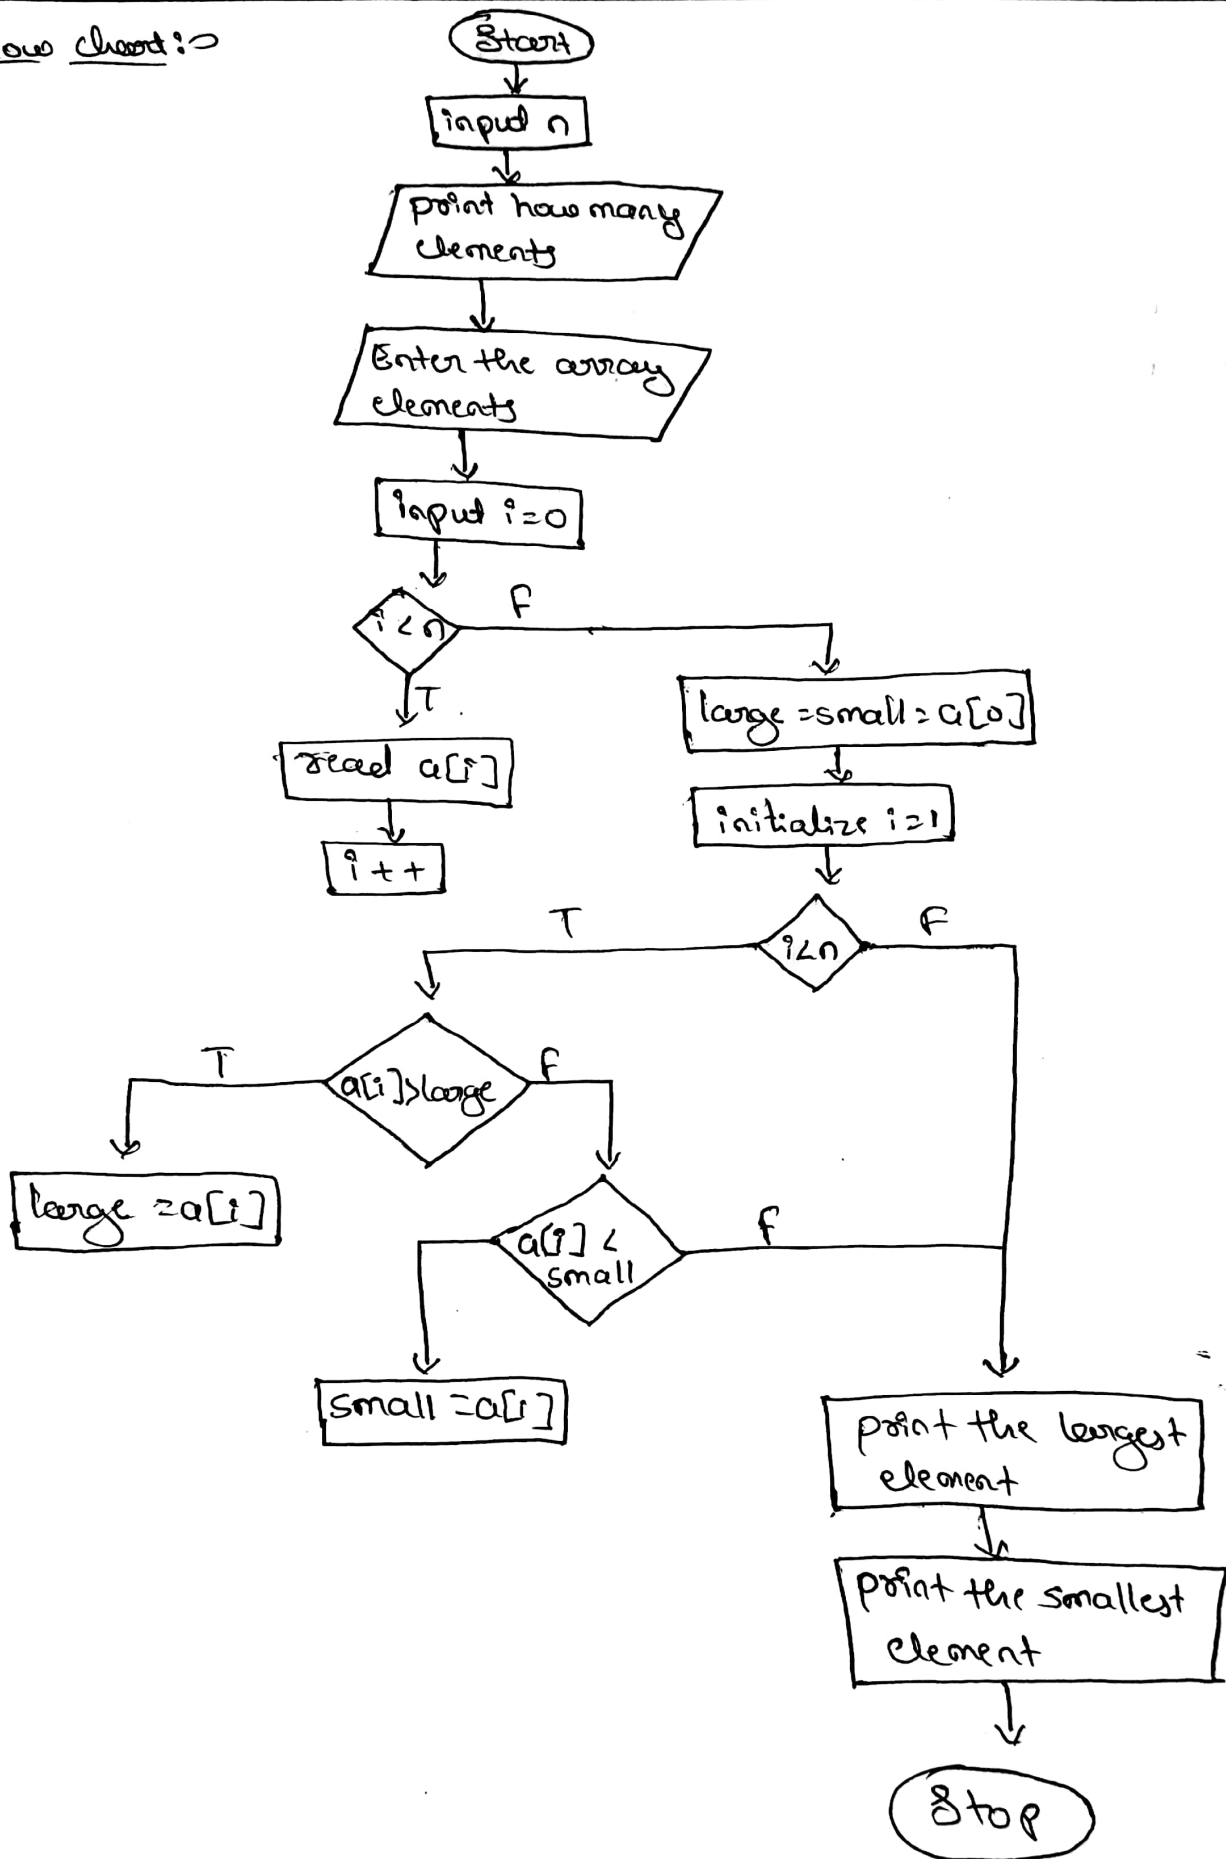 ow chart:-
Start
input n
print how many
elements
Enter the array
elements
input i=0
i<n
F
T
read a[i]
i++
large=small=a[0]
initialize i=1
i<n
T
F
a[i]>large
T
F
large=a[i]
a[i]<
small
F
small=a[i]
print the largest
element
print the smallest
element
Stop